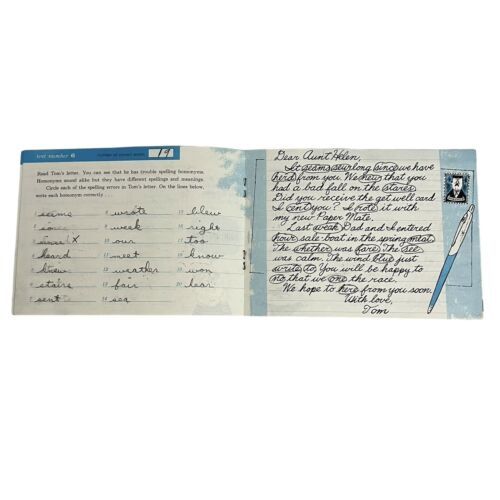 test number 6 number of correct words 19
Read Tom's letter. You can see that he has trouble spelling homonyms.
Homonyms sound alike but they have different spellings and meanings.
Circle each of the spelling errors in Tom's letter. On the lines below,
write each homonym correctly.
seems 8 wrote 15 blew
9 week 16 right
x 10 our 17 too
heard 11 meet 18 know
knew 12 weather 19 won
stairs 13 fair 20 hear
sent 14 sea
Dear Aunt Helen,
It seams sew long since we have
herd from you. We new that you
had a bad fall on the stares.
Did you receive the get well card
I cent you? I rote it with
my new Paper Mate.
Last weak Dad and I entered
hour sale boat in the spring meat.
The whether was fare. The see
was calm. The wind blue just
write to. You will be happy to
no that we one the race.
We hope to here from you soon.
With love,
Tom